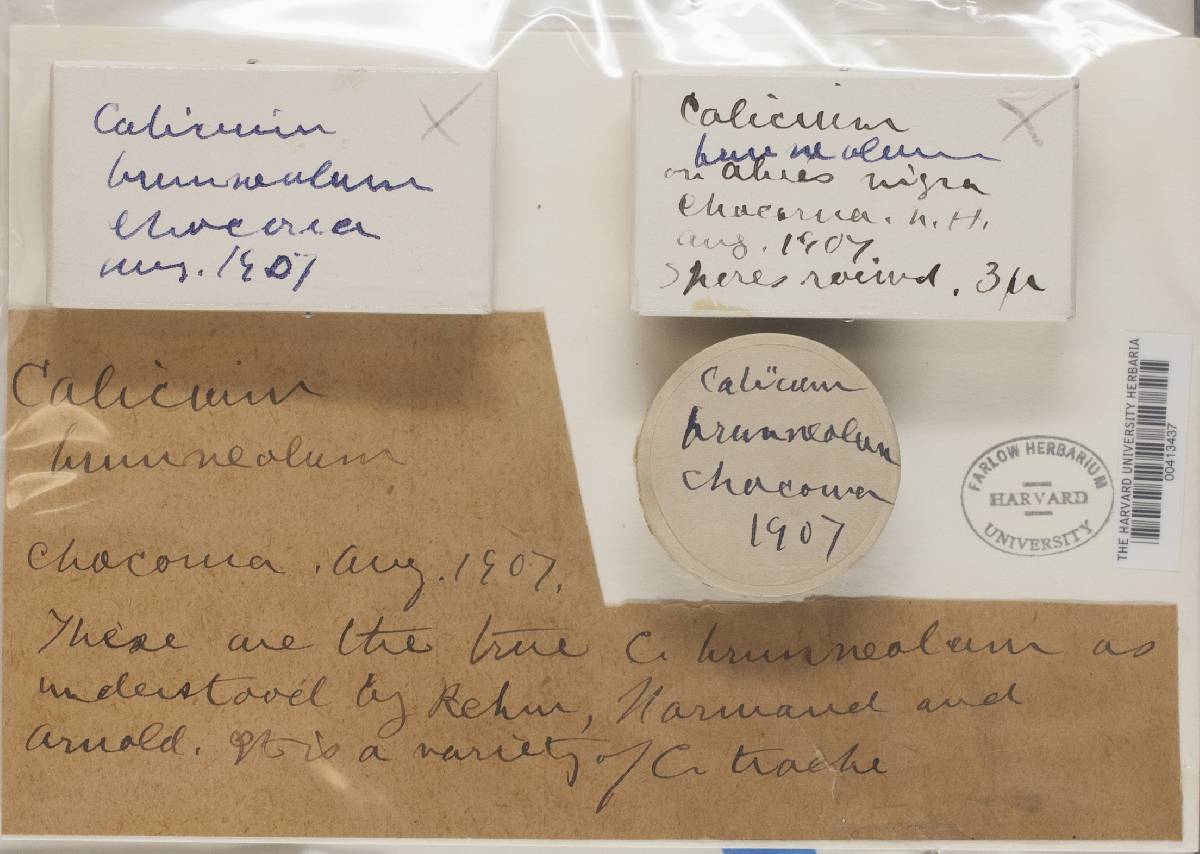 Calicium
brunneolum
Chocorua
Aug. 1907
Calicium
brunneolum
on Abies nigra
Chocorua. N. H.
Aug. 1907
Spores round. 3µ
Calicium
brunneolum
Chocorua
1907
Calicium
brunneolum
Chocorua. Aug. 1907.
These are the true C. brunneolum as
understood by Rehm, Normand and
Arnold. It is a variety of C. trache
FARLOW HERBARIUM
HARVARD
UNIVERSITY
THE HARVARD UNIVERSITY HERBARIA
00413437